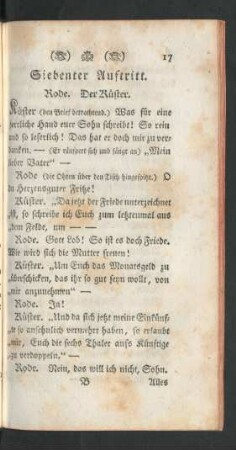 17
Siebenter Auftritt.
Rode. Der Küster.
Küster (den Brief betrachtend.) Was für eine
herrliche Hand eure Sohn schreibt! So rein
und so leserlich! Das hat er doch mir zu ver-
danken. — (Er räuspert sich und fängt an) „Mein
lieber Vater“ —
Rode (die Ohren über den Tisch hingespitzt.) O
du Herzensguter Fritze!
Küster. „Da itzt der Friede unterzeichnet
ist, so schreibe ich Euch zum letztenmal aus
dem Felde, um —
Rode. Gott Lob! So ist es doch Friede.
Wie wird sich die Mutter freuen!
Küster. „Um Euch das Monatsgeld zu
überschicken, das ihr so gut seyn wollt, von
mir anzunehmen“ —
Rode. Ja!
Küster. „Und da sich jetzt meine Einkünf-
te so ansehnlich vermehrt haben, so erlaubt
mir, Euch die sechs Thaler aufs Künftige
zu verdoppeln.“ —
Rode. Nein, das will ich nicht, Sohn.
B Alles